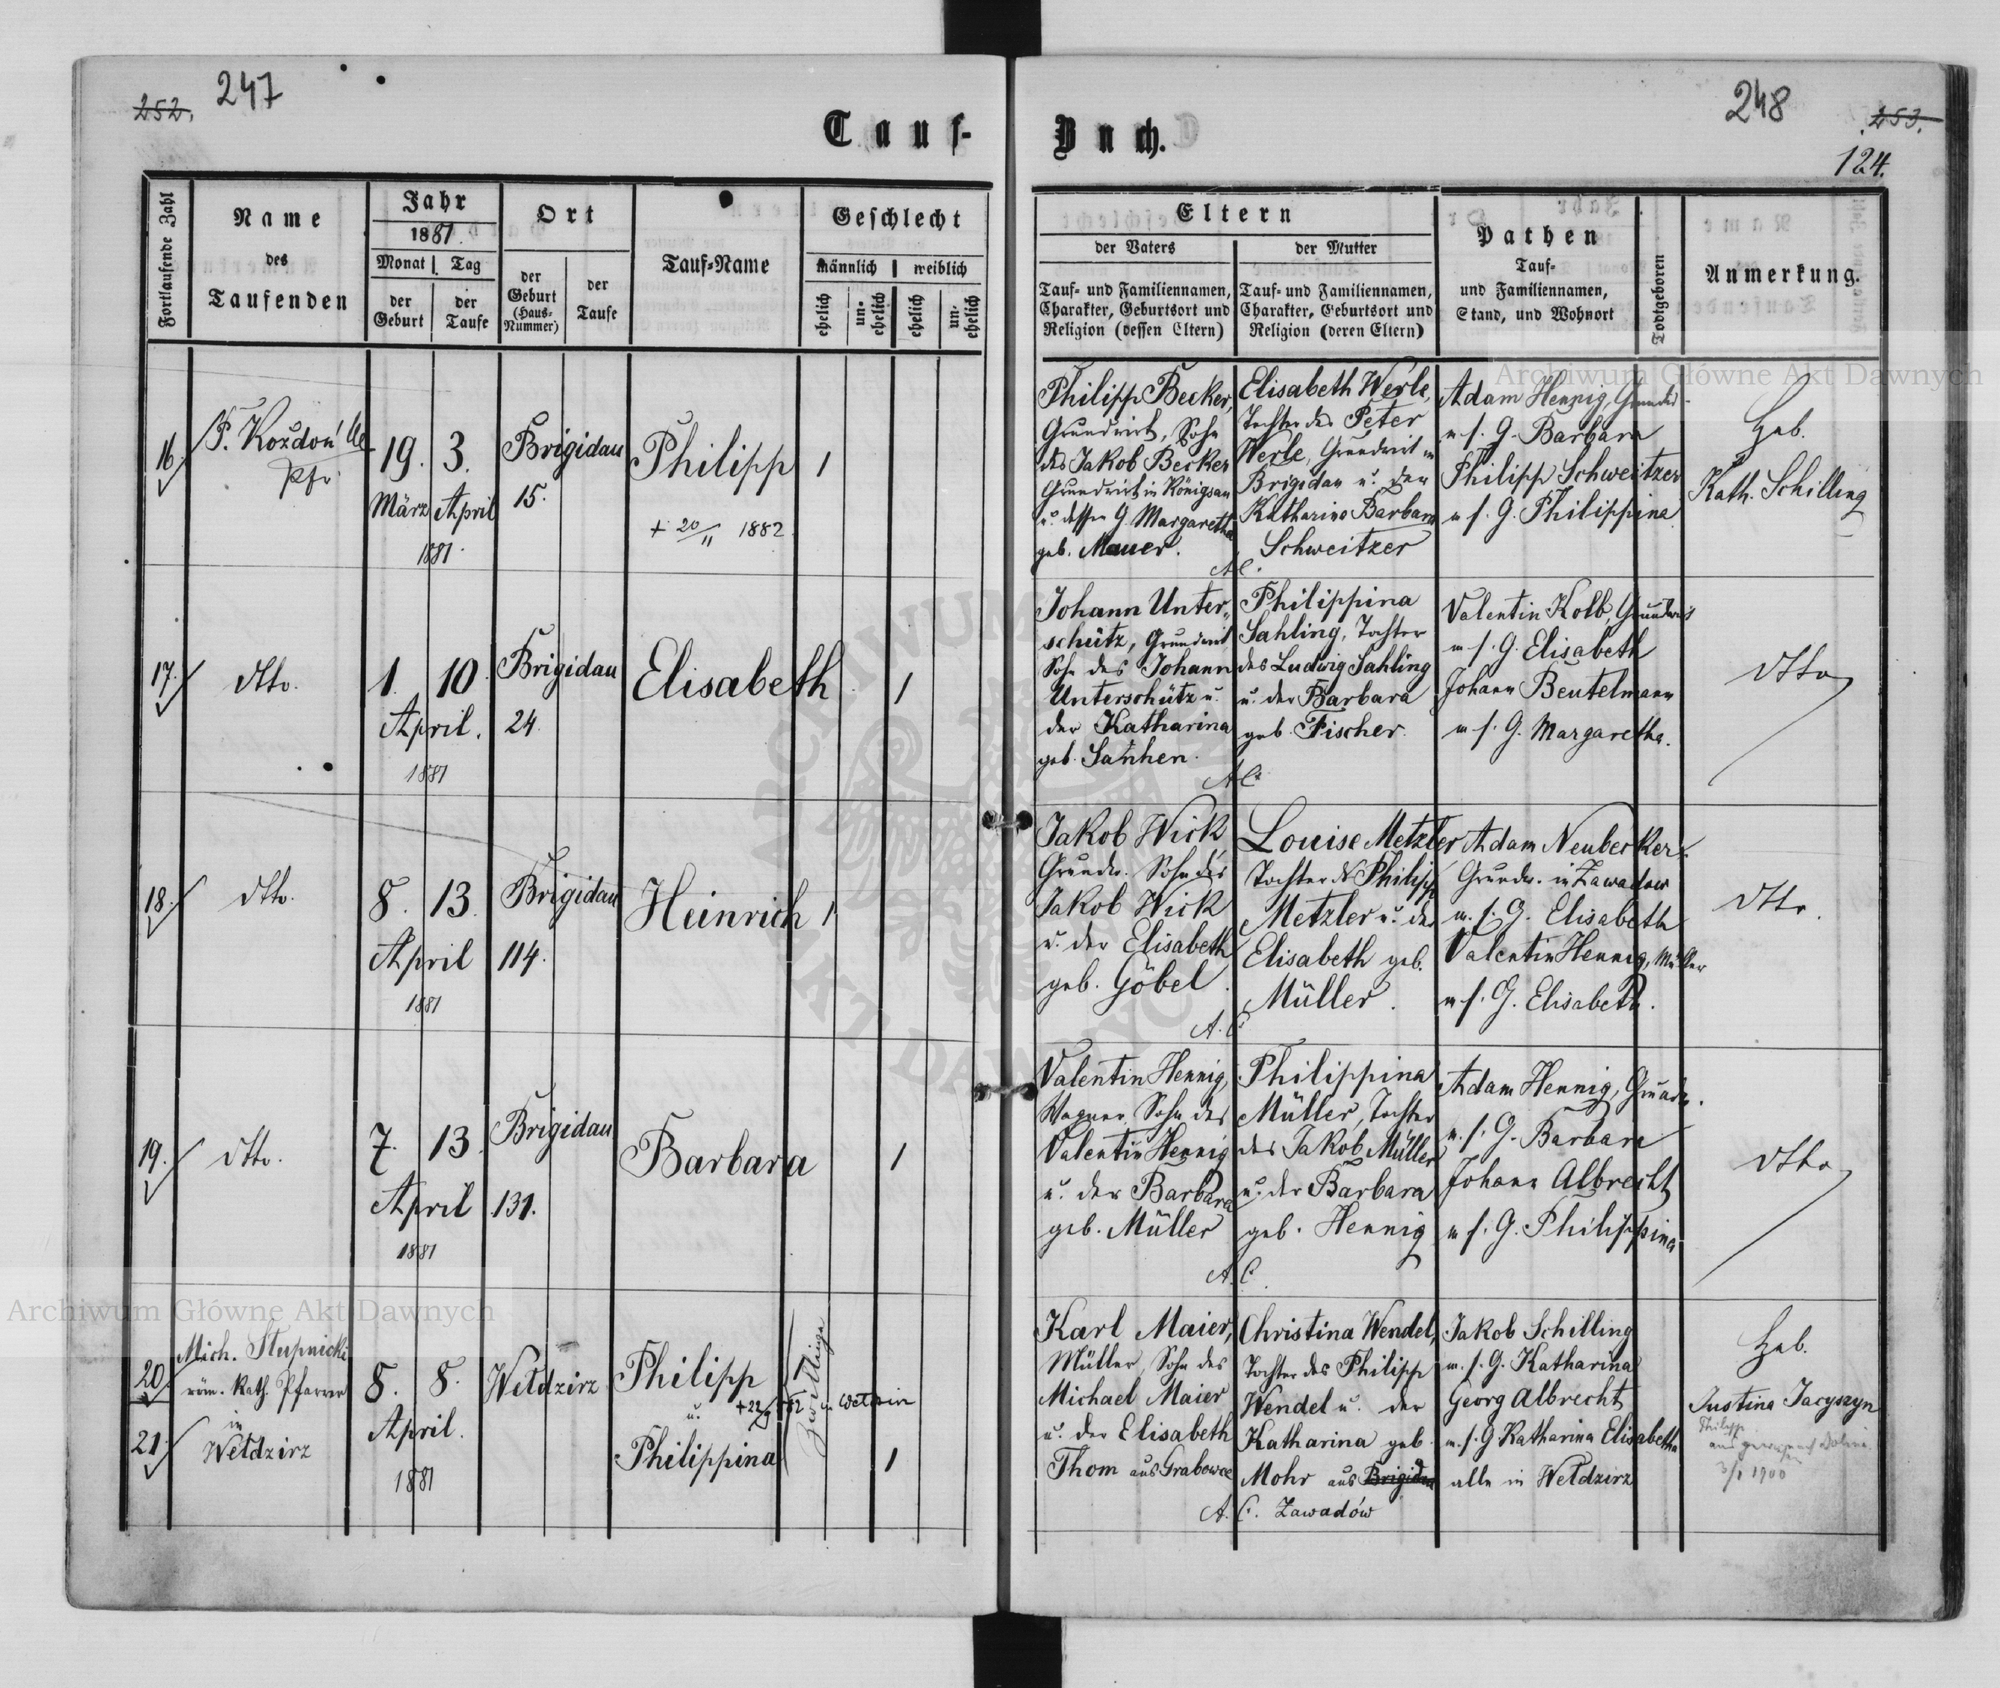 252.
247
Tauf-
Buch.
248
253.
124.
Fortlaufende Zahl
Name
des
Taufenden
Jahr
1881.
Monat
Tag
der
Geburt
der
Taufe
Ort
der
Geburt
(Haus-
Nummer)
der
Taufe
Tauf-Name
Geschlecht
männlich
weiblich
ehelich
un-
ehelich
ehelich
un-
ehelich
Eltern
der Vaters
der Mutter
Tauf- und Familiennamen,
Charakter, Geburtsort und
Religion (dessen Eltern)
Tauf- und Familiennamen,
Charakter, Geburtsort und
Religion (deren Eltern)
Pathen
Tauf-
und Familiennamen,
Stand, und Wohnort
Todtgeboren
Anmerkung.
16.
F. Kozdoń
Pfr.
19. 3.
März April
1881.
Brigidau
15.
Philipp
+ 20/11 1882.
1
Philipp Becker,
Grundwirt, Sohn
des Jakob Becker
Grundwirt in Königsau
u. dessen G. Margaretha
geb. Mauer.
Elisabeth Werle,
Tochter des Peter
Werle, Grundwirt in
Brigidau u. der
Katharina Barbara
Schweitzer
A.C.
Adam Hennig, Grundw.
m. s. G. Barbara
Philipp Schweitzer
m. s. G. Philippina
Heb.
Kath. Schilling
17.
dtto.
1. 10.
April.
1881
Brigidau
24.
Elisabeth
1
Johann Unter-
schütz, Grundwirt
Sohn des Johann
Unterschütz u.
der Katharina
geb. Sanhen.
Philippina
Sahling, Tochter
des Ludwig Sahling
u. der Barbara
geb. Fischer.
A.C.
Valentin Kolb, Grundwirt
m. s. G. Elisabeth
Johann Beutelmann
m. s. G. Margaretha.
dtto
18.
dtto.
8. 13.
April
1881
Brigidau
114.
Heinrich
1
Jakob Wick,
Grundw. Sohn des
Jakob Wick
u. der Elisabeth
geb. Göbel.
Louise Metzler
Tochter d. Philipp
Metzler u. der
Elisabeth geb.
Müller.
A.C.
Adam Neubecker,
Grundw. in Zawadow
m. s. G. Elisabeth
Valentin Hennig, Müller
m. s. G. Elisabeth.
dtto.
19.
dtto.
7. 13.
April
1881
Brigidau
131.
Barbara
1
Valentin Hennig,
Wagner, Sohn des
Valentin Hennig
u. der Barbara
geb. Müller
Philippina
Müller, Tochter
des Jakob Müller
u. der Barbara
geb. Hennig
A.C.
Adam Hennig, Grundw.
m. s. G. Barbara
Johann Albrecht
m. s. G. Philippina
dtto
20.
21.
Mich. Stupnicki
röm. kath. Pfarrer
in
Wełdzirz
8. 8.
April.
1881
Wełdzirz
Philipp
u.
Philippina
Zwillinge
1
1
Karl Maier,
Müller, Sohn des
Michael Maier
u. der Elisabeth
Thom aus Grabowce
Christina Wendel,
Tochter des Philipp
Wendel u. der
Katharina geb.
Mohr aus Brigidau
A.C. Zawadów
Jakob Schilling
m. s. G. Katharina
Georg Albrecht
m. s. G. Katharina Elisabetha
alle in Wełdzirz
Heb.
Justina Jacyszyn
Philipp
3/1 1900
Archiwum Główne Akt Dawnych
Archiwum Główne Akt Dawnych
ARCHIWUM
AKT DAWNYCH